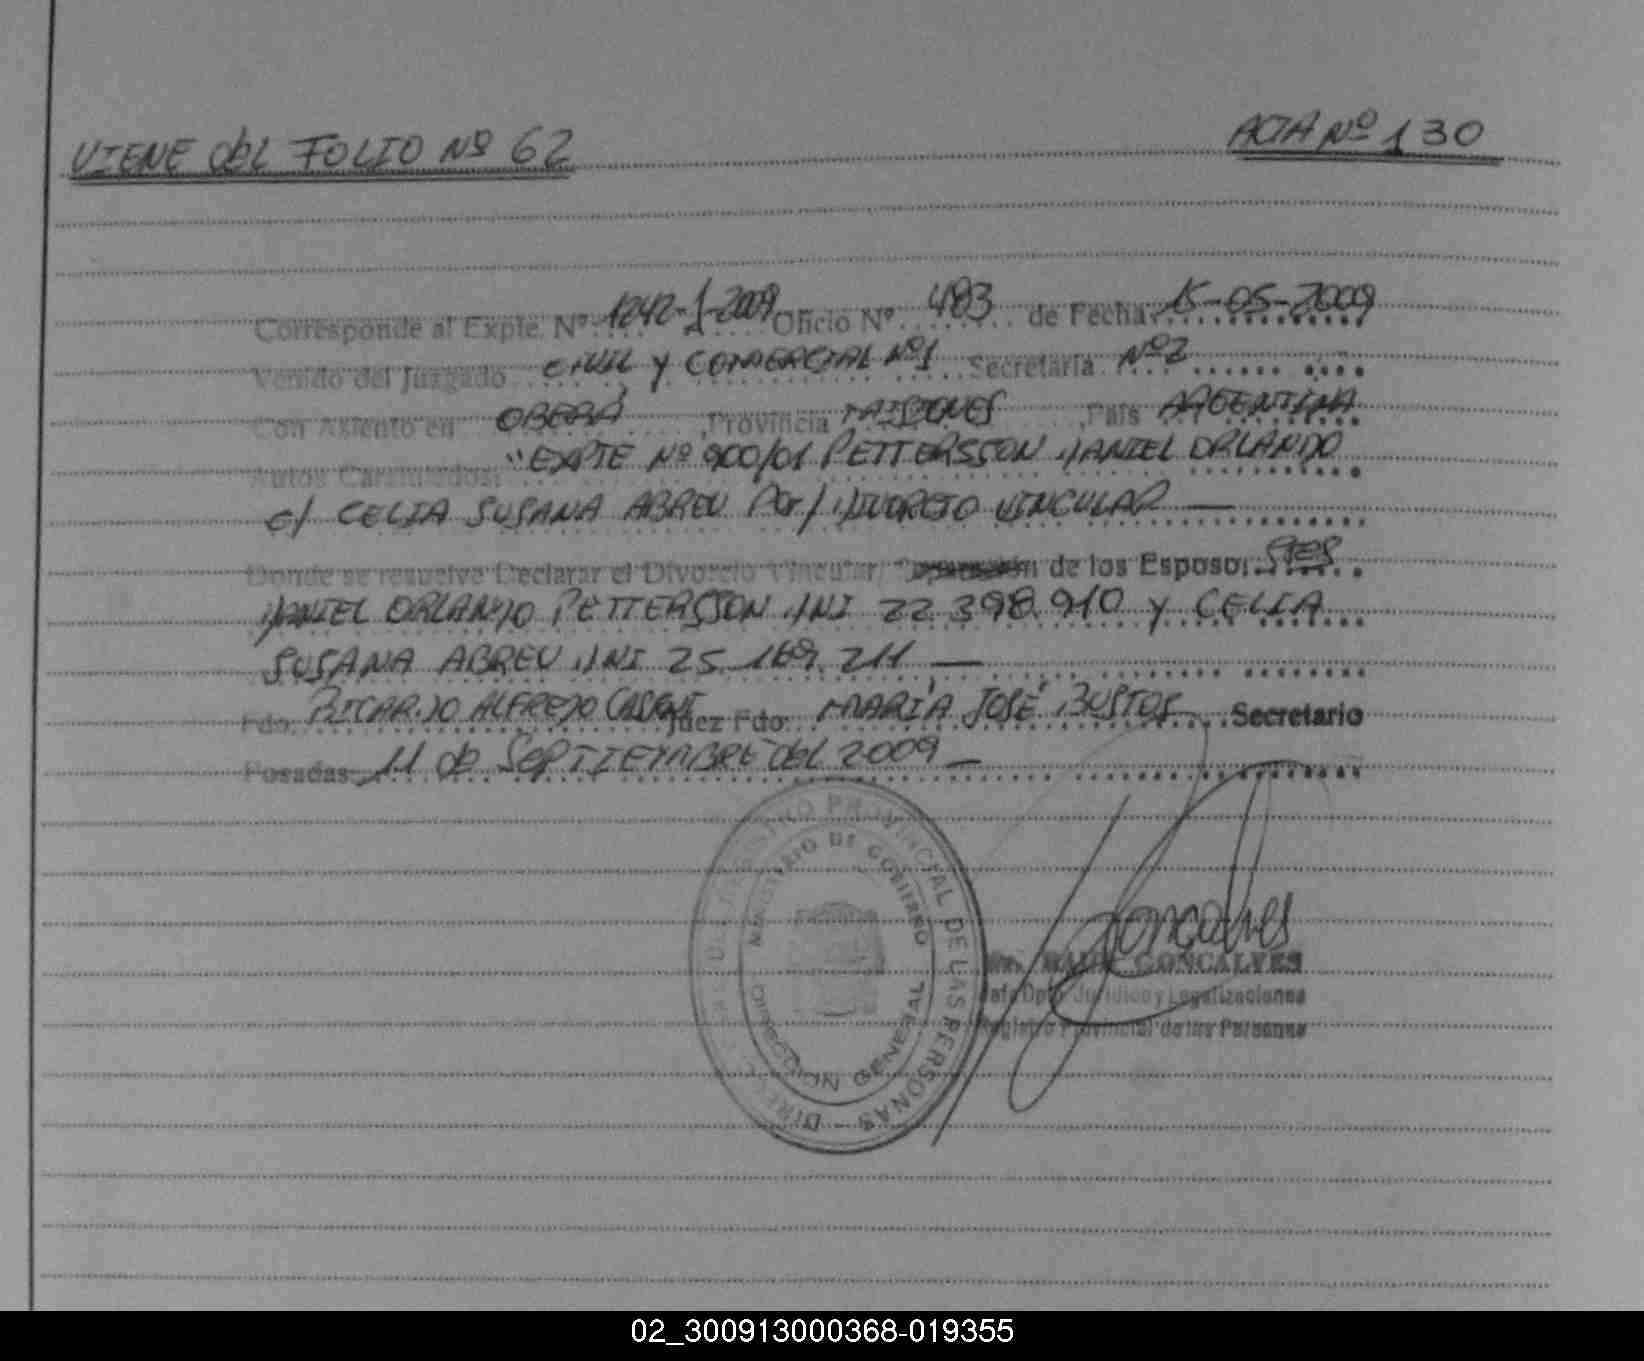 VIENE del FOLIO Nº 62
ACTA Nº 130
Corresponde al Expte. Nº 1242-J-2009 Oficio Nº 483 de Fecha 15-05-2009
Venido del Juzgado CIVIL y COMERCIAL Nº1 Secretaria Nº2
Con Asiento en OBERÁ, Provincia MISIONES, País ARGENTINA
Autos Caratulados: "EXPTE Nº 900/01 PETTERSSON DANIEL ORLANDO
c/ CELIA SUSANA ABREU Por/ DIVORCIO VINCULAR —
Donde se resuelve Declarar el Divorcio Vincular, de los Esposos:
DANIEL ORLANDO PETTERSSON DNI 22.398.910 y CELIA
SUSANA ABREU DNI 25.169.211 —
Fdo. RICARDO ALFREDO Juez Fdo: MARÍA JOSÉ BUSTOS Secretario
Posadas, 11 de SEPTIEMBRE del 2009 —
REGISTRO PROVINCIAL DE LAS PERSONAS
MINISTERIO DE GOBIERNO
DIRECCION GENERAL
Goncalves
GONCALVES
Jefe Dpto. Jurídico y Legalizaciones
Registro Provincial de las Personas
02_300913000368-019355